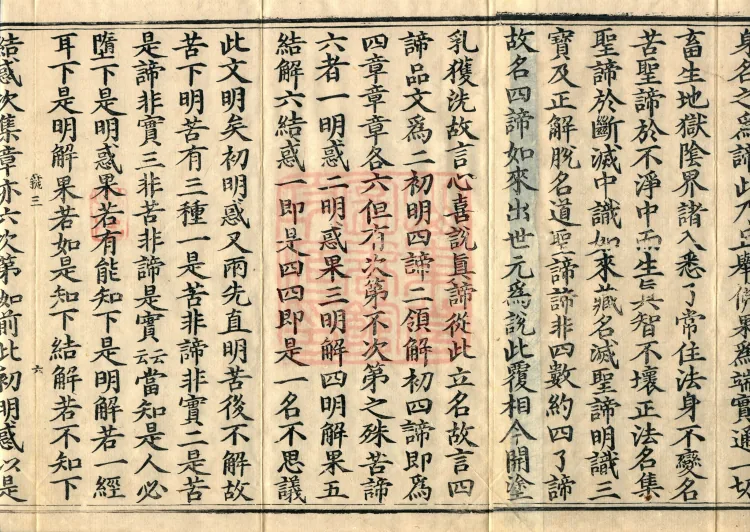 身名之為諦此乃且舉佛果為端實通一切
畜生地獄陰界諸入悉了常住法身不變名
苦聖諦於不淨中而生真智不壞正法名集
聖諦於斷滅中識如來藏名滅聖諦明識三
寶及正解脫名道聖諦諦非四數約四了諦
故名四諦如來出世元為說此覆相今開塗
乳獲洗故言心喜說真諦從此立名故言四
諦品文為二初明四諦二領解初四諦即為
四章章章各六但有次第不次第之殊苦諦
六者一明惑二明惑果三明解四明解果五
結解六結惑一即是四四即是一名不思議
此文明矣初明惑又兩先直明苦後不解故
苦下明苦有三種一是苦非諦非實二是苦
是諦非實三非苦非諦是實云云當知是人必
墮下是明惑果若有能知下是明解若一經
耳下是明解果若如是知下結解若不知下
號三
六
結惑次集章亦六次第如前此初明惑以是